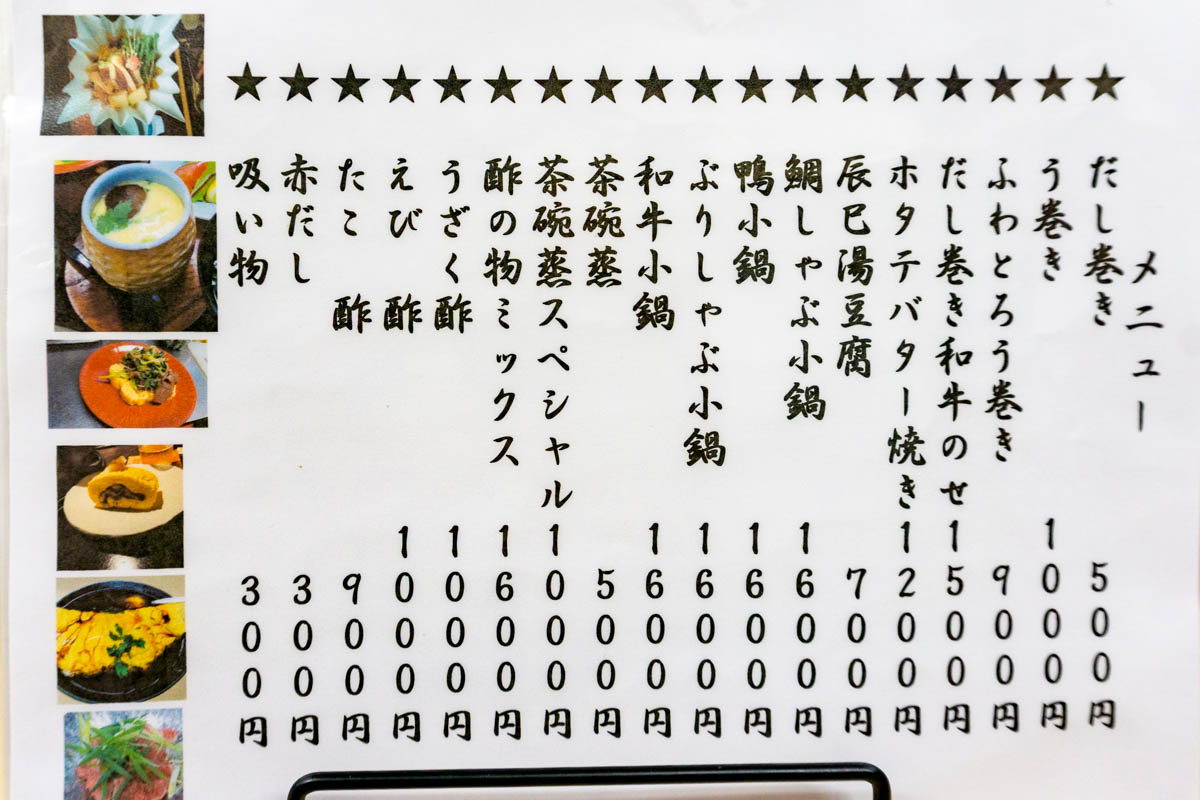 メニュー
★だし巻き 500円
★う巻き 1000円
★ふわとろう巻き 900円
★だし巻き和牛のせ 1500円
★ホタテバター焼き 1200円
★辰巳湯豆腐 700円
★鯛しゃぶ小鍋 1600円
★鴨小鍋 1600円
★ぶりしゃぶ小鍋 1600円
★和牛小鍋 1600円
★茶碗蒸 500円
★茶碗蒸スペシャル 1000円
★酢の物ミックス 1600円
★うざく酢 1000円
★えび 酢 1000円
★たこ 酢 900円
★赤だし 300円
★吸い物 300円